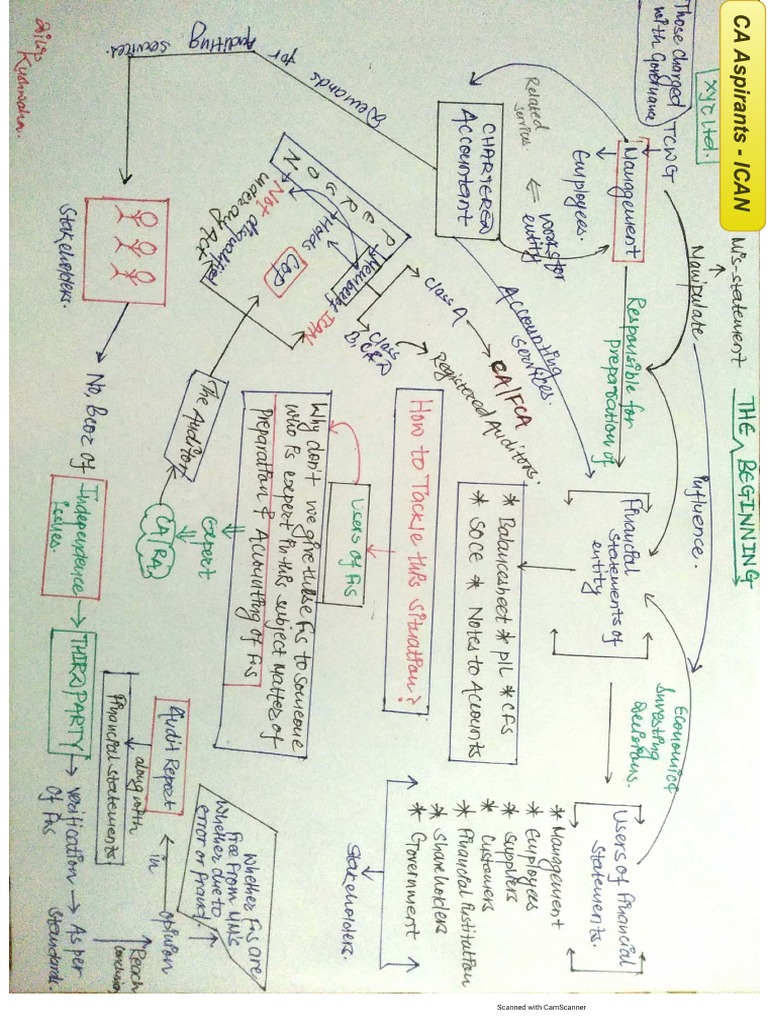 CA Aspirants - ICAN
THE BEGINNING
Mis-statement
XYZ Ltd.
Those charged
with Governance
TCWG
Manipulate
influence.
Management
Employees.
Responsible for
preparation of
Financial
Statements of
entity
Economic &
Investing
Decisions.
Users of Financial
Statements.
* Management
* Employees
* Suppliers
* Customers
* Financial institution
* Shareholders
* Government
Stakeholders.
* Balancesheet * P/L * CFS
* SOCE * Notes to Accounts
Related
service.
works for
entity
CHARTERED
Accountant
Accounting
services.
How to Tackle this situation?
Users of Fis
Why don't we give these Fis to someone
who is expert in this subject matter of
preparation & Accounting of Fis
Expert
CA/RA
The Auditor
Demands
for
Auditing services.
PERSON
Member of ICAN
Holds
COP
Not disqualified
under any Act
Class A
CA/FCA
Class
B, C & D
Registered Auditors.
Stakeholders.
No, Becoz of
Independence
issues.
THIRD PARTY
verification
of Fis
As per
standards.
Reach
conclusion
opinion
in
Audit Report
along with
Financial statements
Whether Fis are
free from MMs
whether due to
error or fraud.
Kushwaha.
Scanned with CamScanner